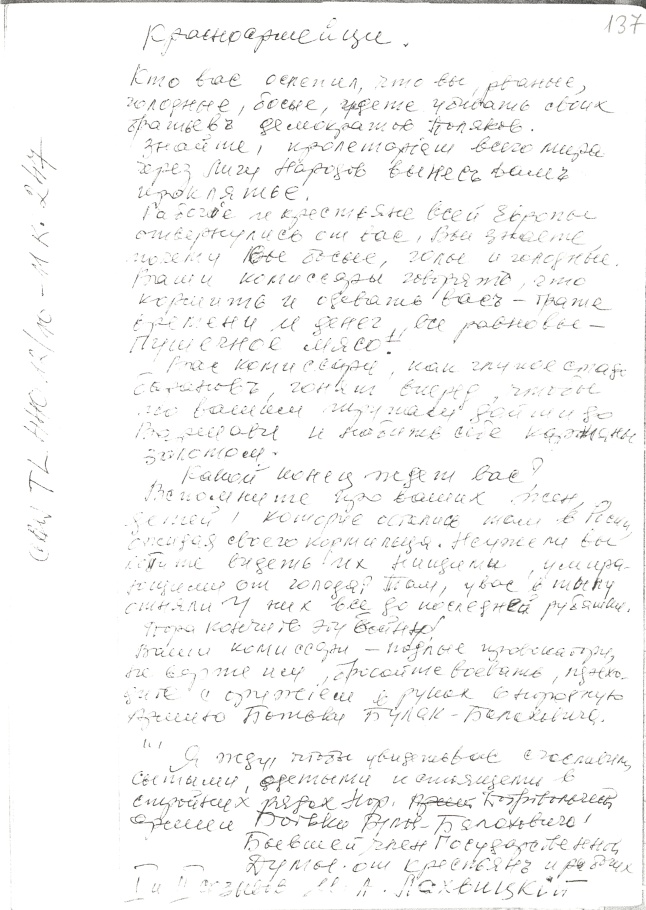 137
Красноармейци.
Кто вас ослепил, что вы, рваные,
голодные, босые, идете убивать своих
братьевъ демократов Поляков.
Знайте, пролетариат всего мира
через Лигу Народов вынесъ вамъ
проклятье.
Рабочие и крестьяне всей Европы
отвернулись от вас, Вы знаете
почему Вы босые, голые и голодные.
Ваши комиссары говорятъ, что
кормить и одевать васъ –
времени и денег, все равно вы –
Пушечное мясо!
Вас комиссары, как глупое стадо
барановъ, гонят вперед, чтобы
по вашим трупам дойти до
Варшавы и набить себе карманы
золотом.
Какой конец ждет вас?
Вспомните про ваших жен,
детей, которые остались там в
ожидая своего кормильца. Неужели вы
хотите видеть их нищими, умира-
ющими от голода? Там, у вас в тылу
отняли у них все до последней рубашки.
Пора кончить эту войну!
Ваши комиссары – подлые провокаторы,
не верьте им, бросайте воевать, перехо-
дите с оружием в руках в народную
Армию Батьки Булак-Балаховича.
"1"
Я жду, чтобы увидеть вас счастливыми,
сытыми, одетыми и стоящими в
стройных рядах Нар. Добровольческой
армии Батьки Булак-Балаховича!
Бывшей член Государственной
Думы от крестьянъ и рабочих
М. А. Лахвицкой
TL 440.12/10 – М К. 2/17